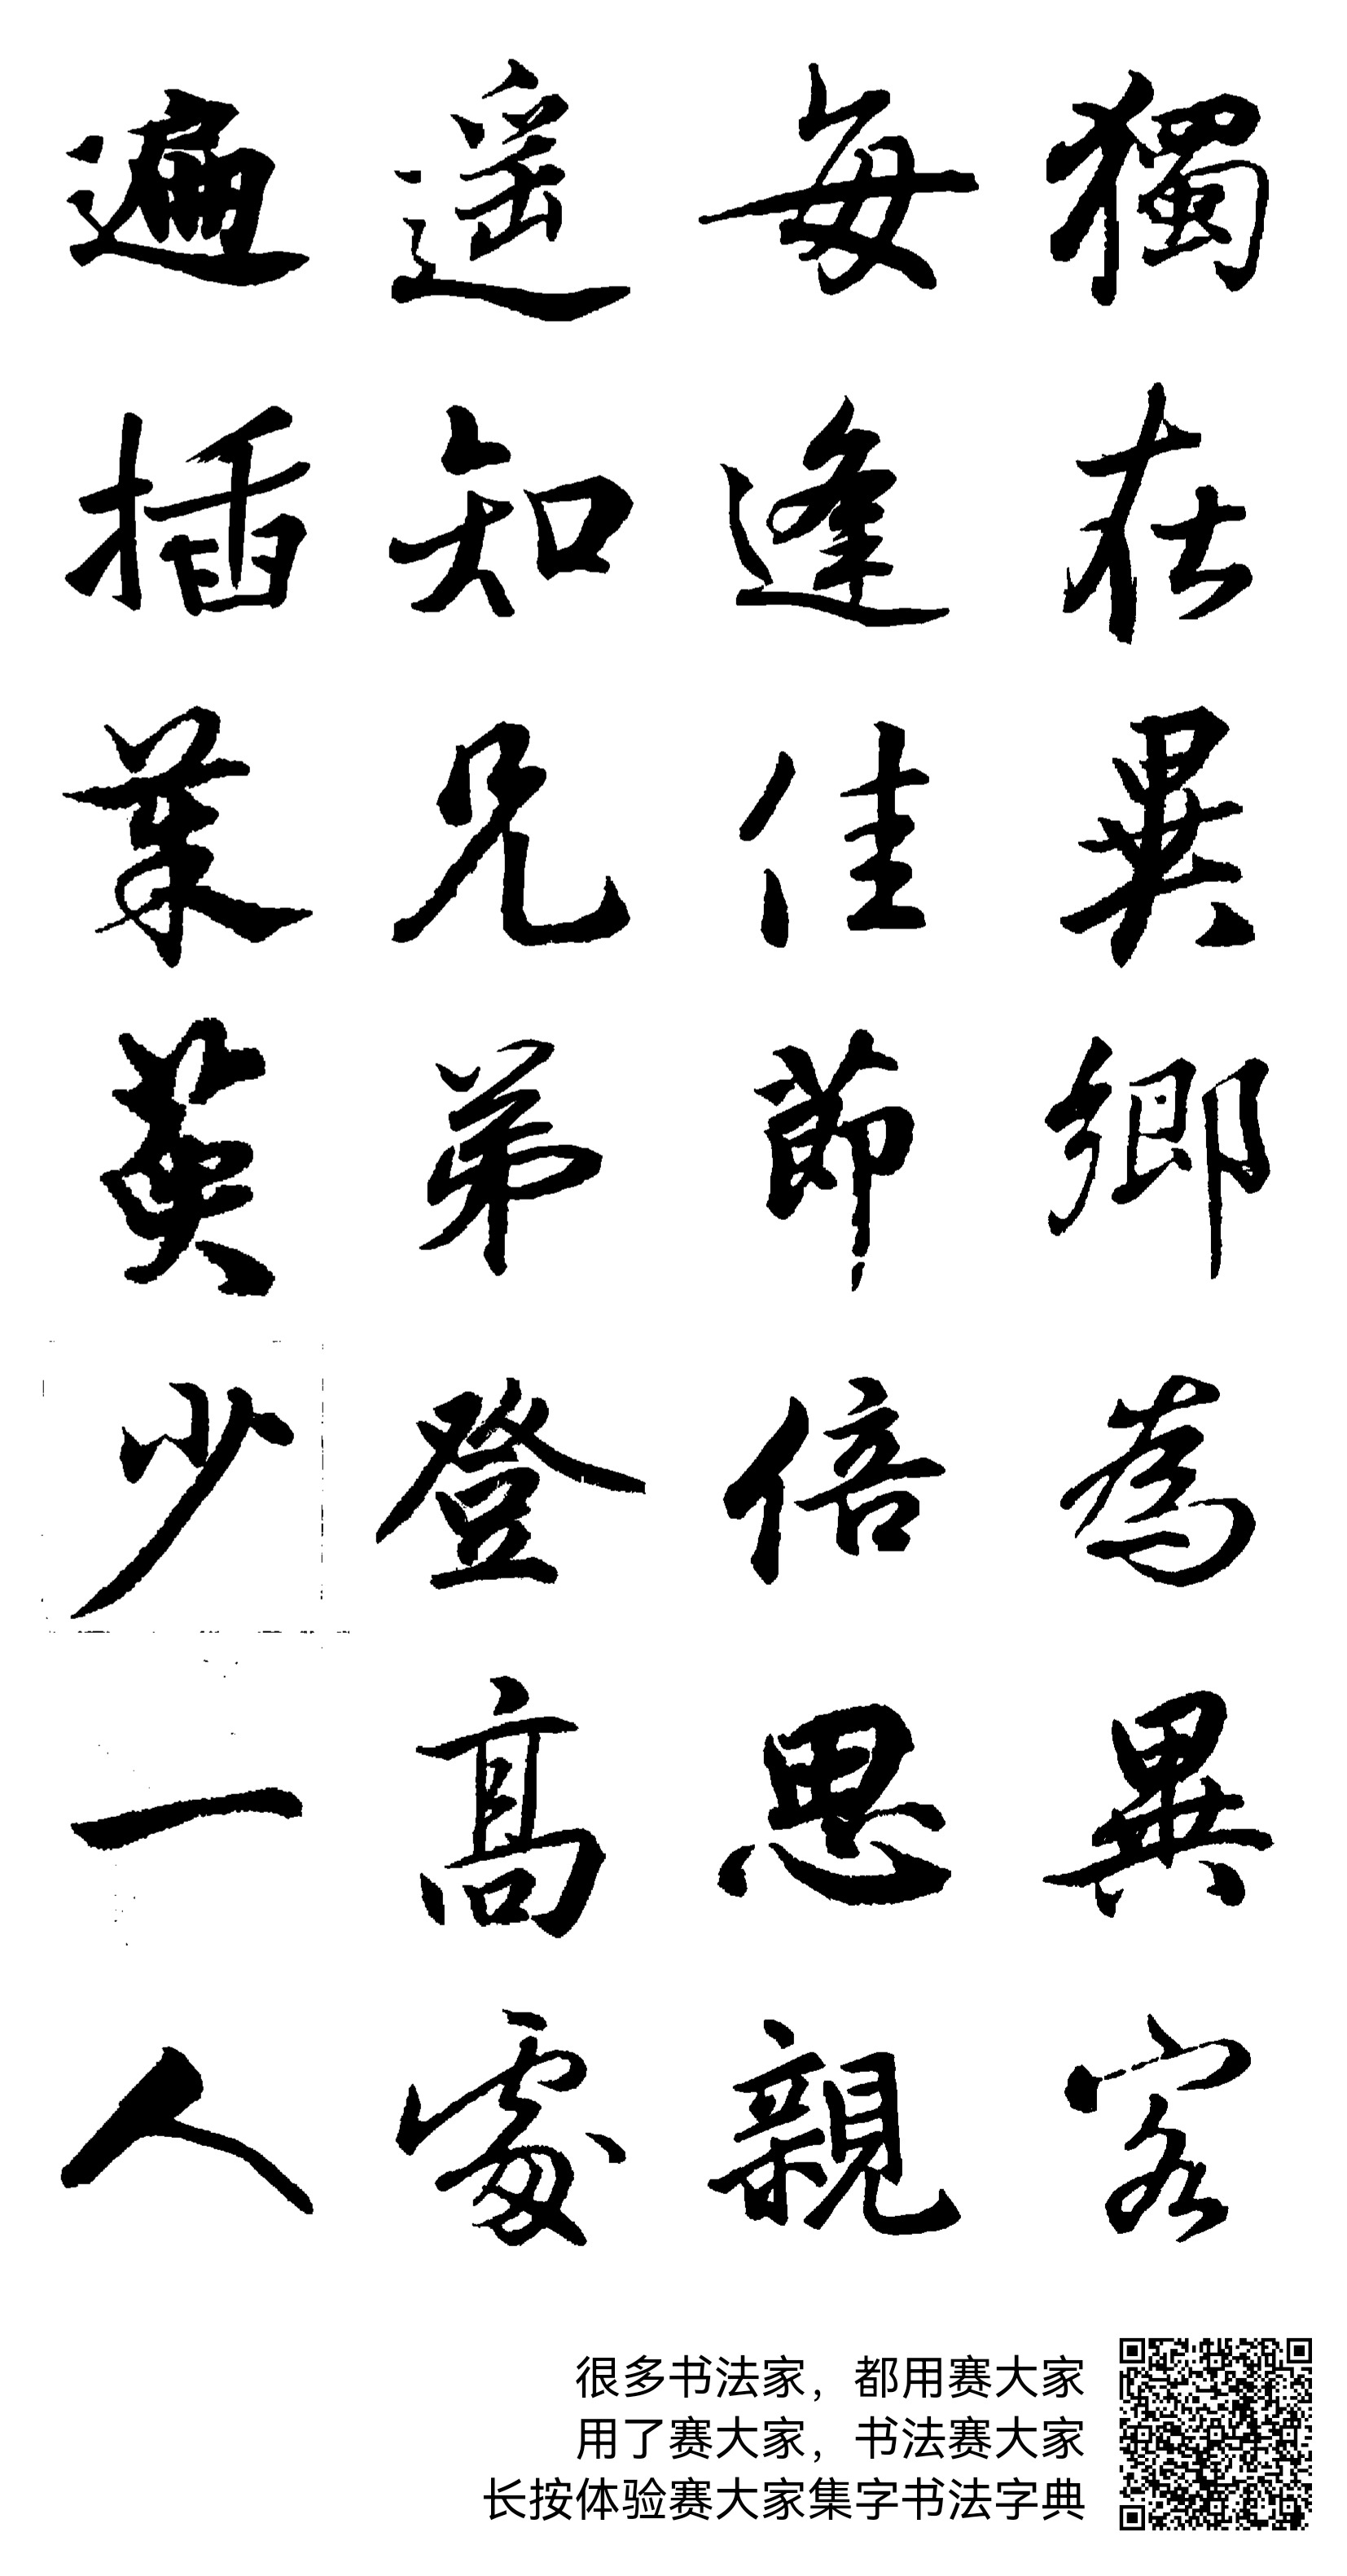 獨在異鄉為異客
每逢佳節倍思親
遥知兄弟登髙處
遍插茱萸少一人
很多书法家，都用赛大家
用了赛大家，书法赛大家
长按体验赛大家集字书法字典